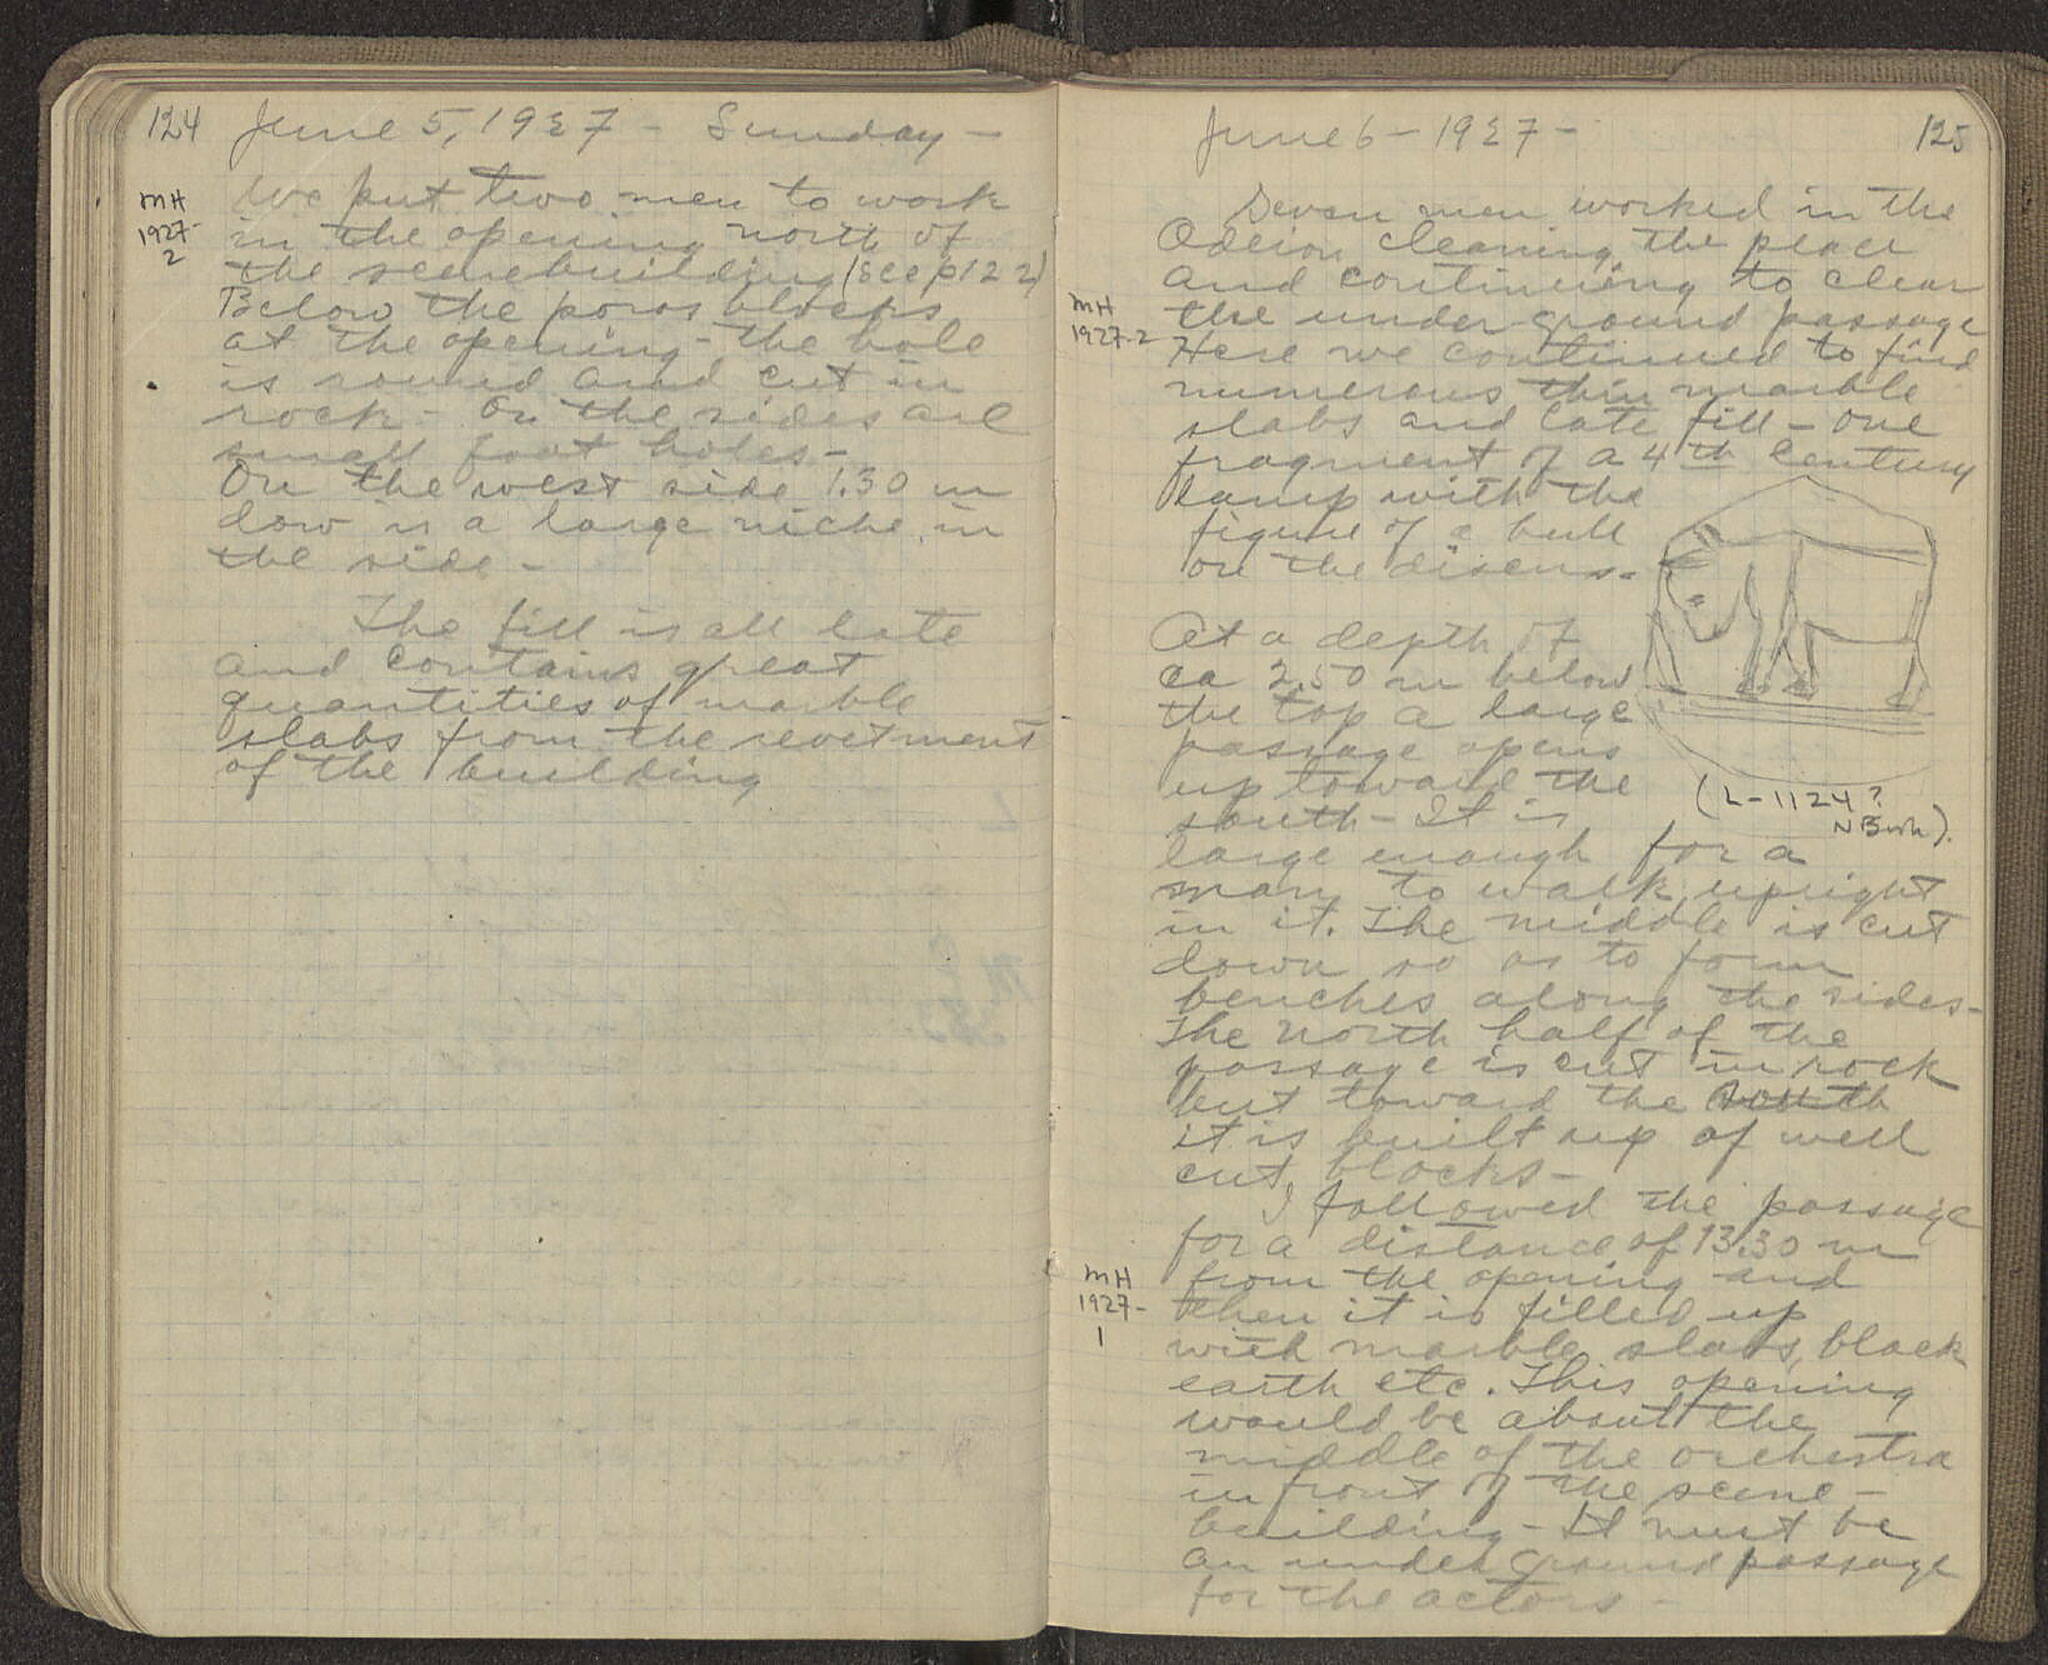 124 June 5, 1927 - Sunday -
MH
1927-
2
We put two men to work
in the opening north of
the scenebuilding (see p 122)
Below the poros blocks
at the opening - the hole
is round and cut in
rock - On the sides are
small foot holes -
On the west side 1.30 m
dow is a large niche in
the side -
The fill is all late
and contains great
quantities of marble
slabs from the revetment
of the building
June 6 - 1927 - 125
Seven men worked in the
Odeion cleaning the place
and continuing to clear
MH
1927-2
the underground passage
Here we continued to find
numerous thin marble
slabs and late fill - one
fragment of a 4th century
lamp with the
figure of a bull
on the discus.
(L-1124?
At a depth of
ca 2.50 m below
the top a large
passage opens
up toward the
south - It is
large enough for a
man to walk upright
in it. The middle is cut
down so as to form
benches along the sides -
The north half of the
passage is cut in rock
but toward the south
it is built up of well
cut blocks -
I followed the passage
for a distance of 13.30 m
MH
1927-
1
from the opening and
then it is filled up
with marble slabs, black
earth etc. This opening
would be about the
middle of the orchestra
in front of the scene -
building - It must be
an underground passage
for the actors -